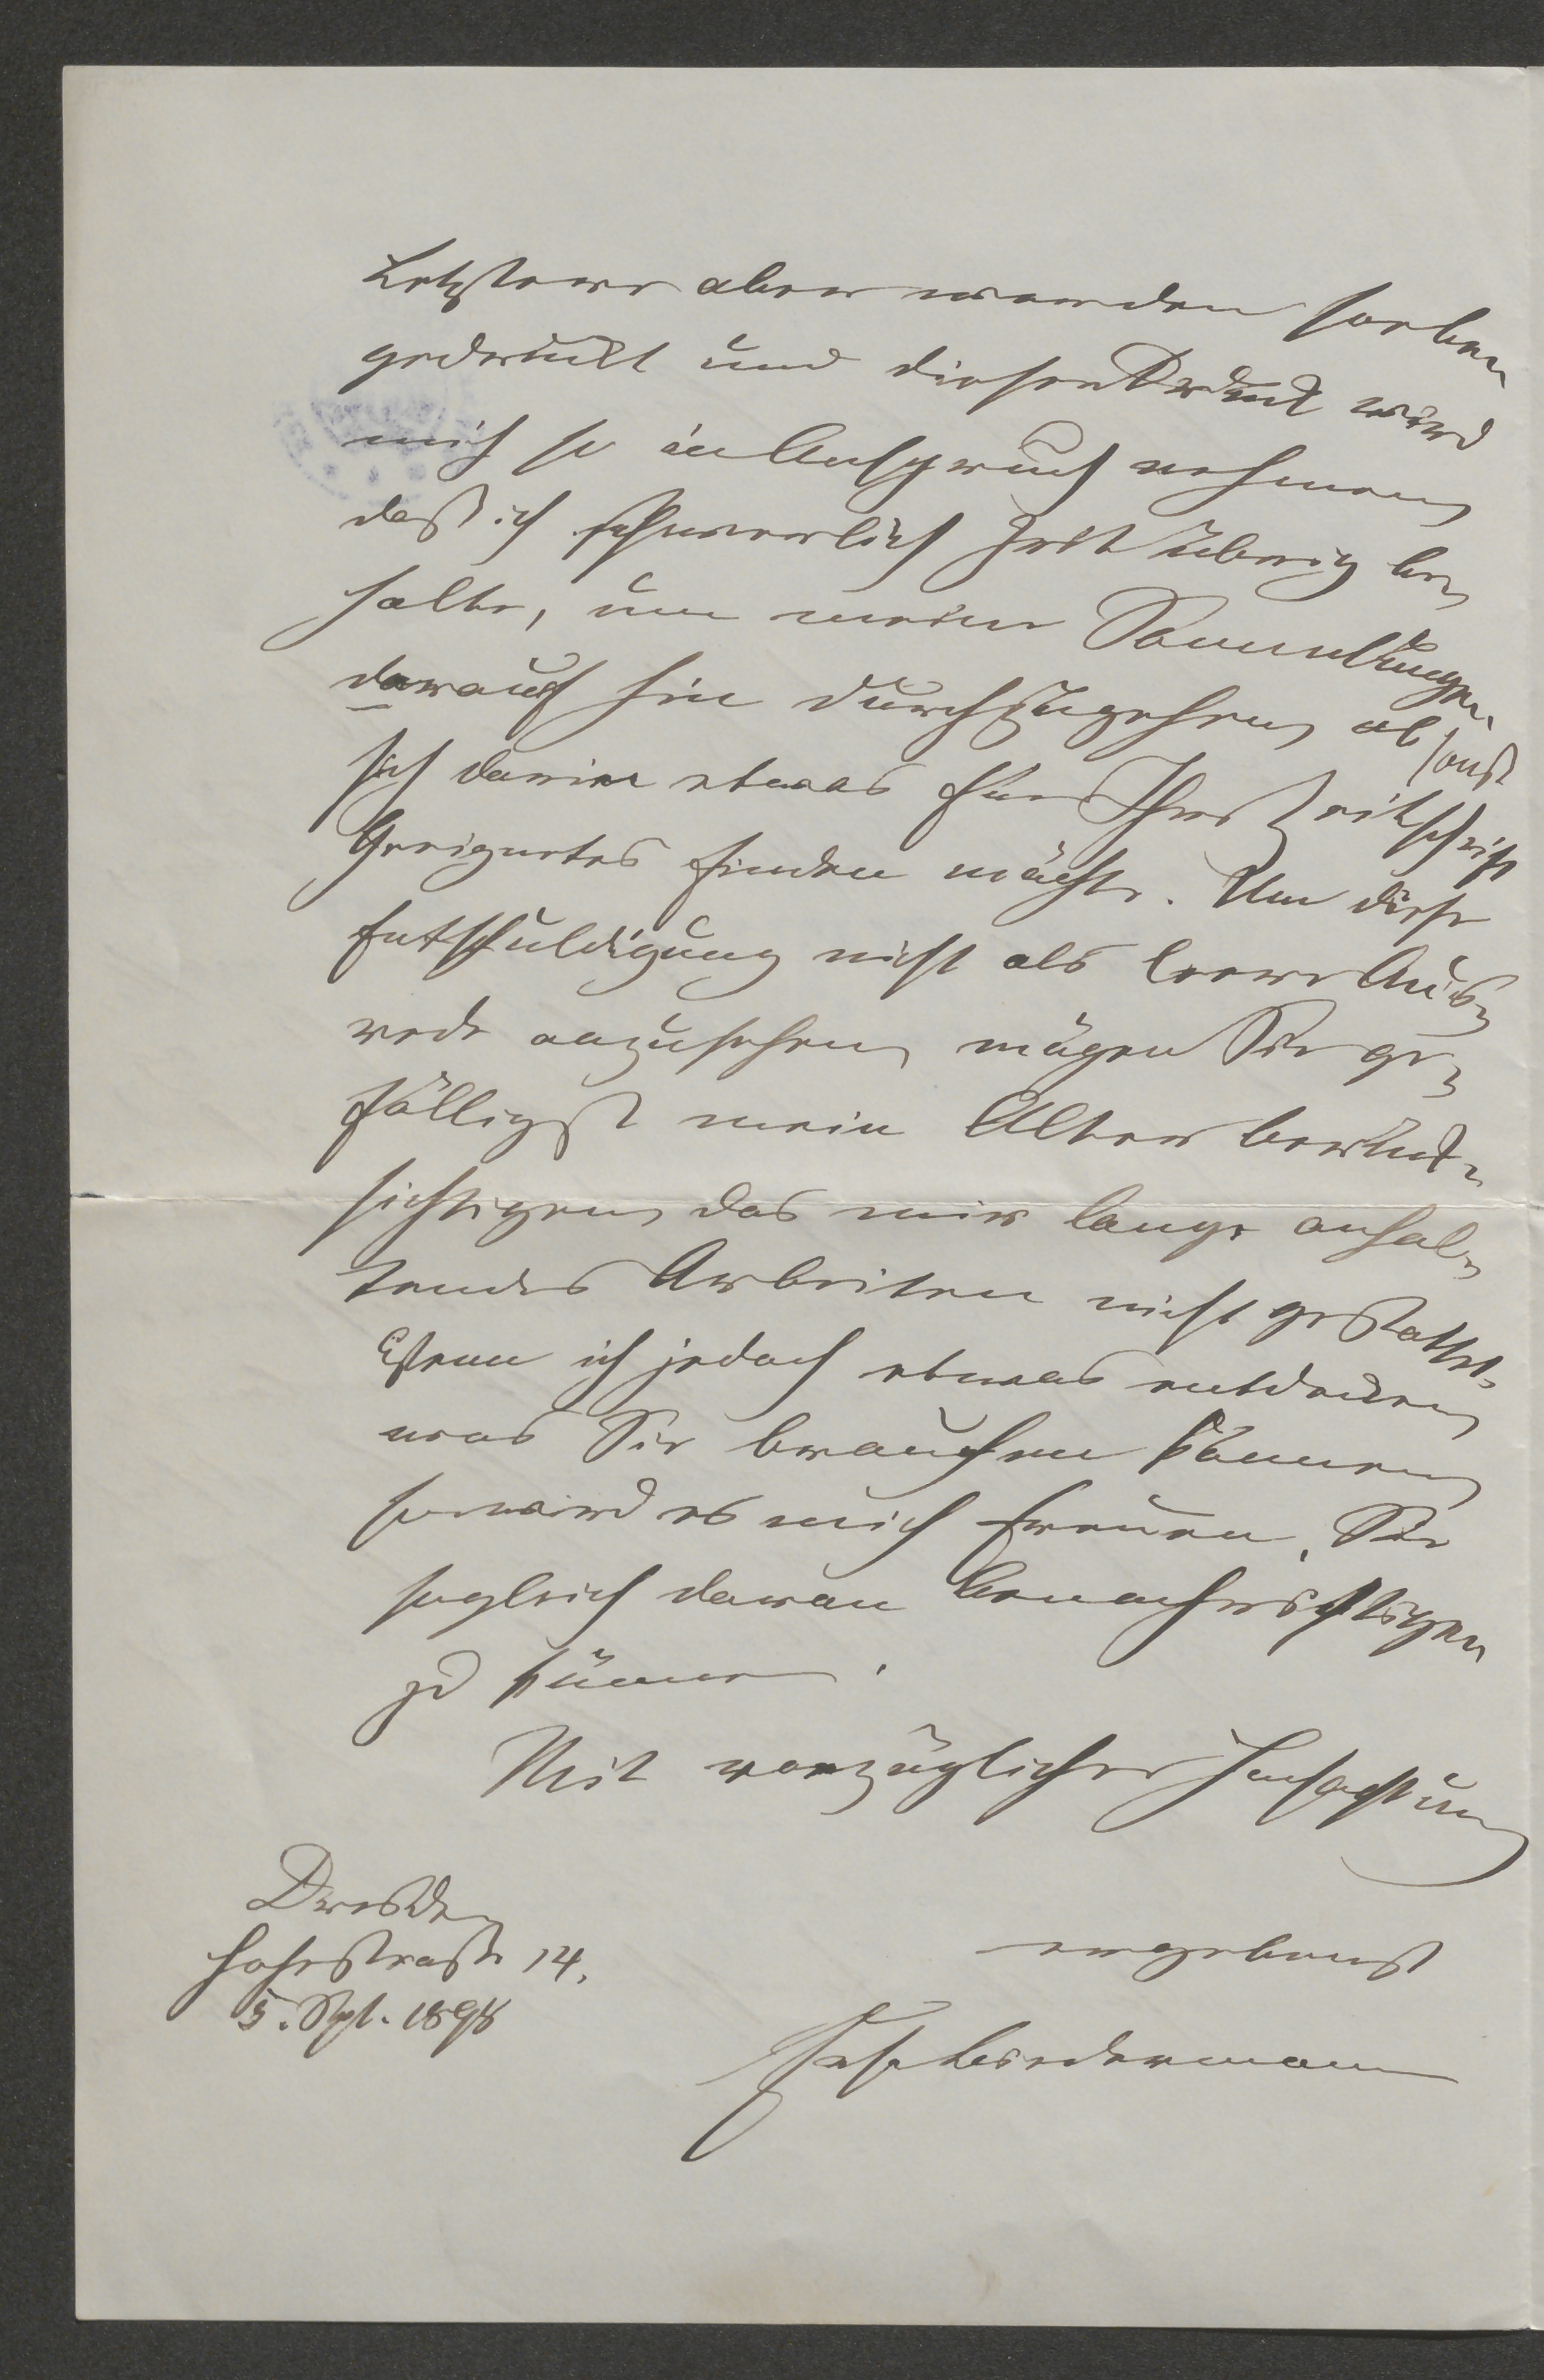 Letztere aber werden soeben
gedruckt und dieser Druck wird
mich so in Anspruch nehmen,
daß ich schwerlich Zeit übrig be-
halte, um meine Sammlungen
darauf hin durchzugehen, ob sonst
sich darin etwas für Ihre Zeitschrift
Geeignetes finden möchte. Um diese
Entschuldigung nicht als leere Aus-
rede anzusehen, mögen Sie ge-
fälligst mein Alter berück-
sichtigen, das mir lange anhal-
tendes Arbeiten nicht gestattet.
Wenn ich jedoch etwas entdecken,
was Sie brauchen können,
so wird es mich freuen, Sie
sogleich davon benachrichtigen
zu können.
Mit vorzüglicher Hochachtung
Dresden
Hohestraße 14.
5. Spt. 1898
ergebenst
Biedermann